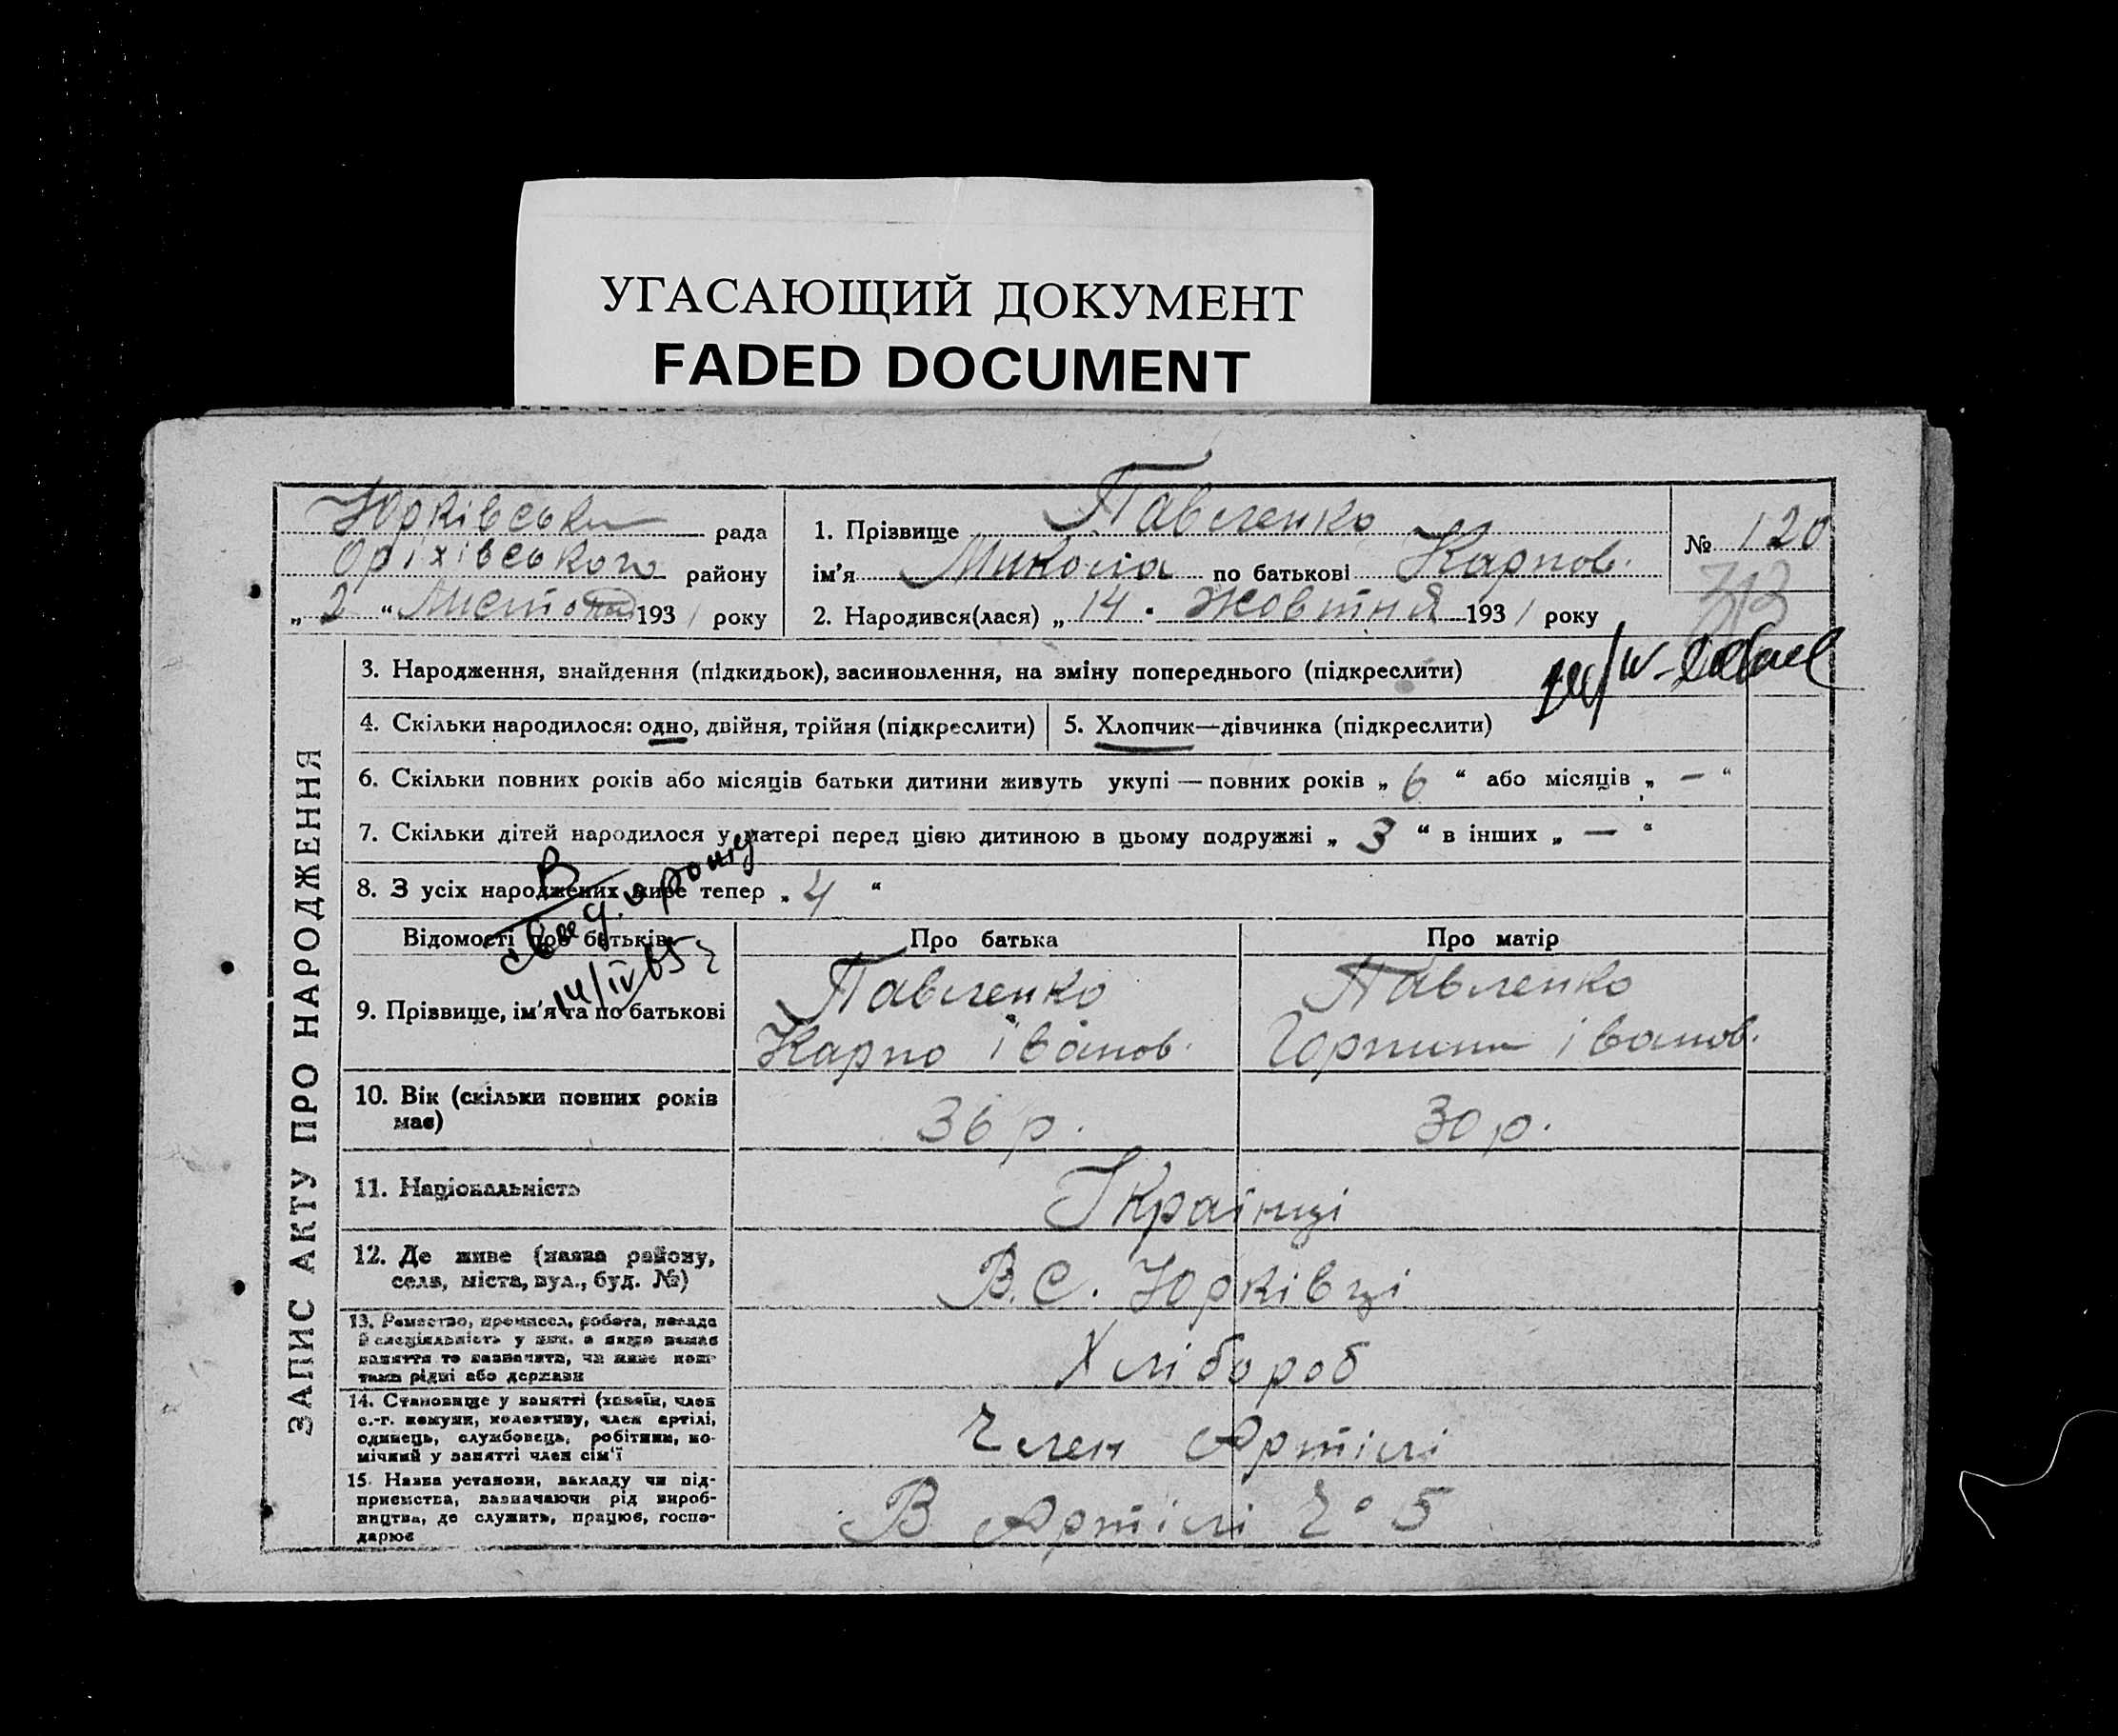 УГАСАЮЩИЙ ДОКУМЕНТ
FADED DOCUMENT
Юрківська рада
Оріхівського району
„ 2 “ Листопад 1931 року
1. Прізвище Павленко
ім'я Микола по батькові Карпов.
2. Народився(лася) „ 14 " Жовтня 1931 року
№ 120
313
ЗАПИС АКТУ ПРО НАРОДЖЕННЯ
3. Народження, знайдення (підкидьок), засиновлення, на зміну попереднього (підкреслити)
4. Скільки народилося: одно, двійня, трійня (підкреслити)
5. Хлопчик—дівчинка (підкреслити)
6. Скільки повних років або місяців батьки дитини живуть укупі — повних років „ 6 “ або місяців „ — “
7. Скільки дітей народилося у матері перед цією дитиною в цьому подружжі „ 3 “ в інших „ — “
8. З усіх народжених живе тепер „ 4 “
В
свид. о рожд
14/IV 65 г
Відомості про батьків
Про батька
Про матір
9. Прізвище, ім'я та по батькові
Павленко
Карпо іванов.
Павленко
Горпина іванов.
10. Вік (скільки повних років має)
36 р.
30 р.
11. Національність
Українці
12. Де живе (назва району,
села, міста, вул., буд. №)
В. С. Юрківці
13. Ремество, промисел, робота, посада
й спеціяльність у них, а якщо немає
заняття то зазначити, чи живе кош-
тами рідні або держави
Хлібороб
14. Становище у занятті (хазяїн, член
с.-г. комуни, колективу, член артілі,
одинець, службовець, робітник, по-
мічний у занятті член сім'ї
Член Артілі
15. Назва установи, закладу чи під-
приємства, зазначаючи рід вироб-
ництва, де служить, працює, госпо-
дарює
В Артілі Ч° 5